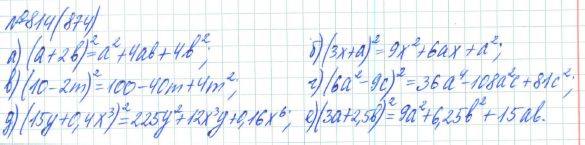 №814(874)
а) (a+2b)²=a²+4ab+4b²; б) (3x+a)²=9x²+6ax+a²;
в) (10-2m)²=100-40m+4m²; г) (6a²-9c)²=36a⁴-108a²c+81c²;
д) (15y+0,4x³)²=225y²+12x³y+0,16x⁶; е) (3a+2,5b)²=9a²+6,25b²+15ab.